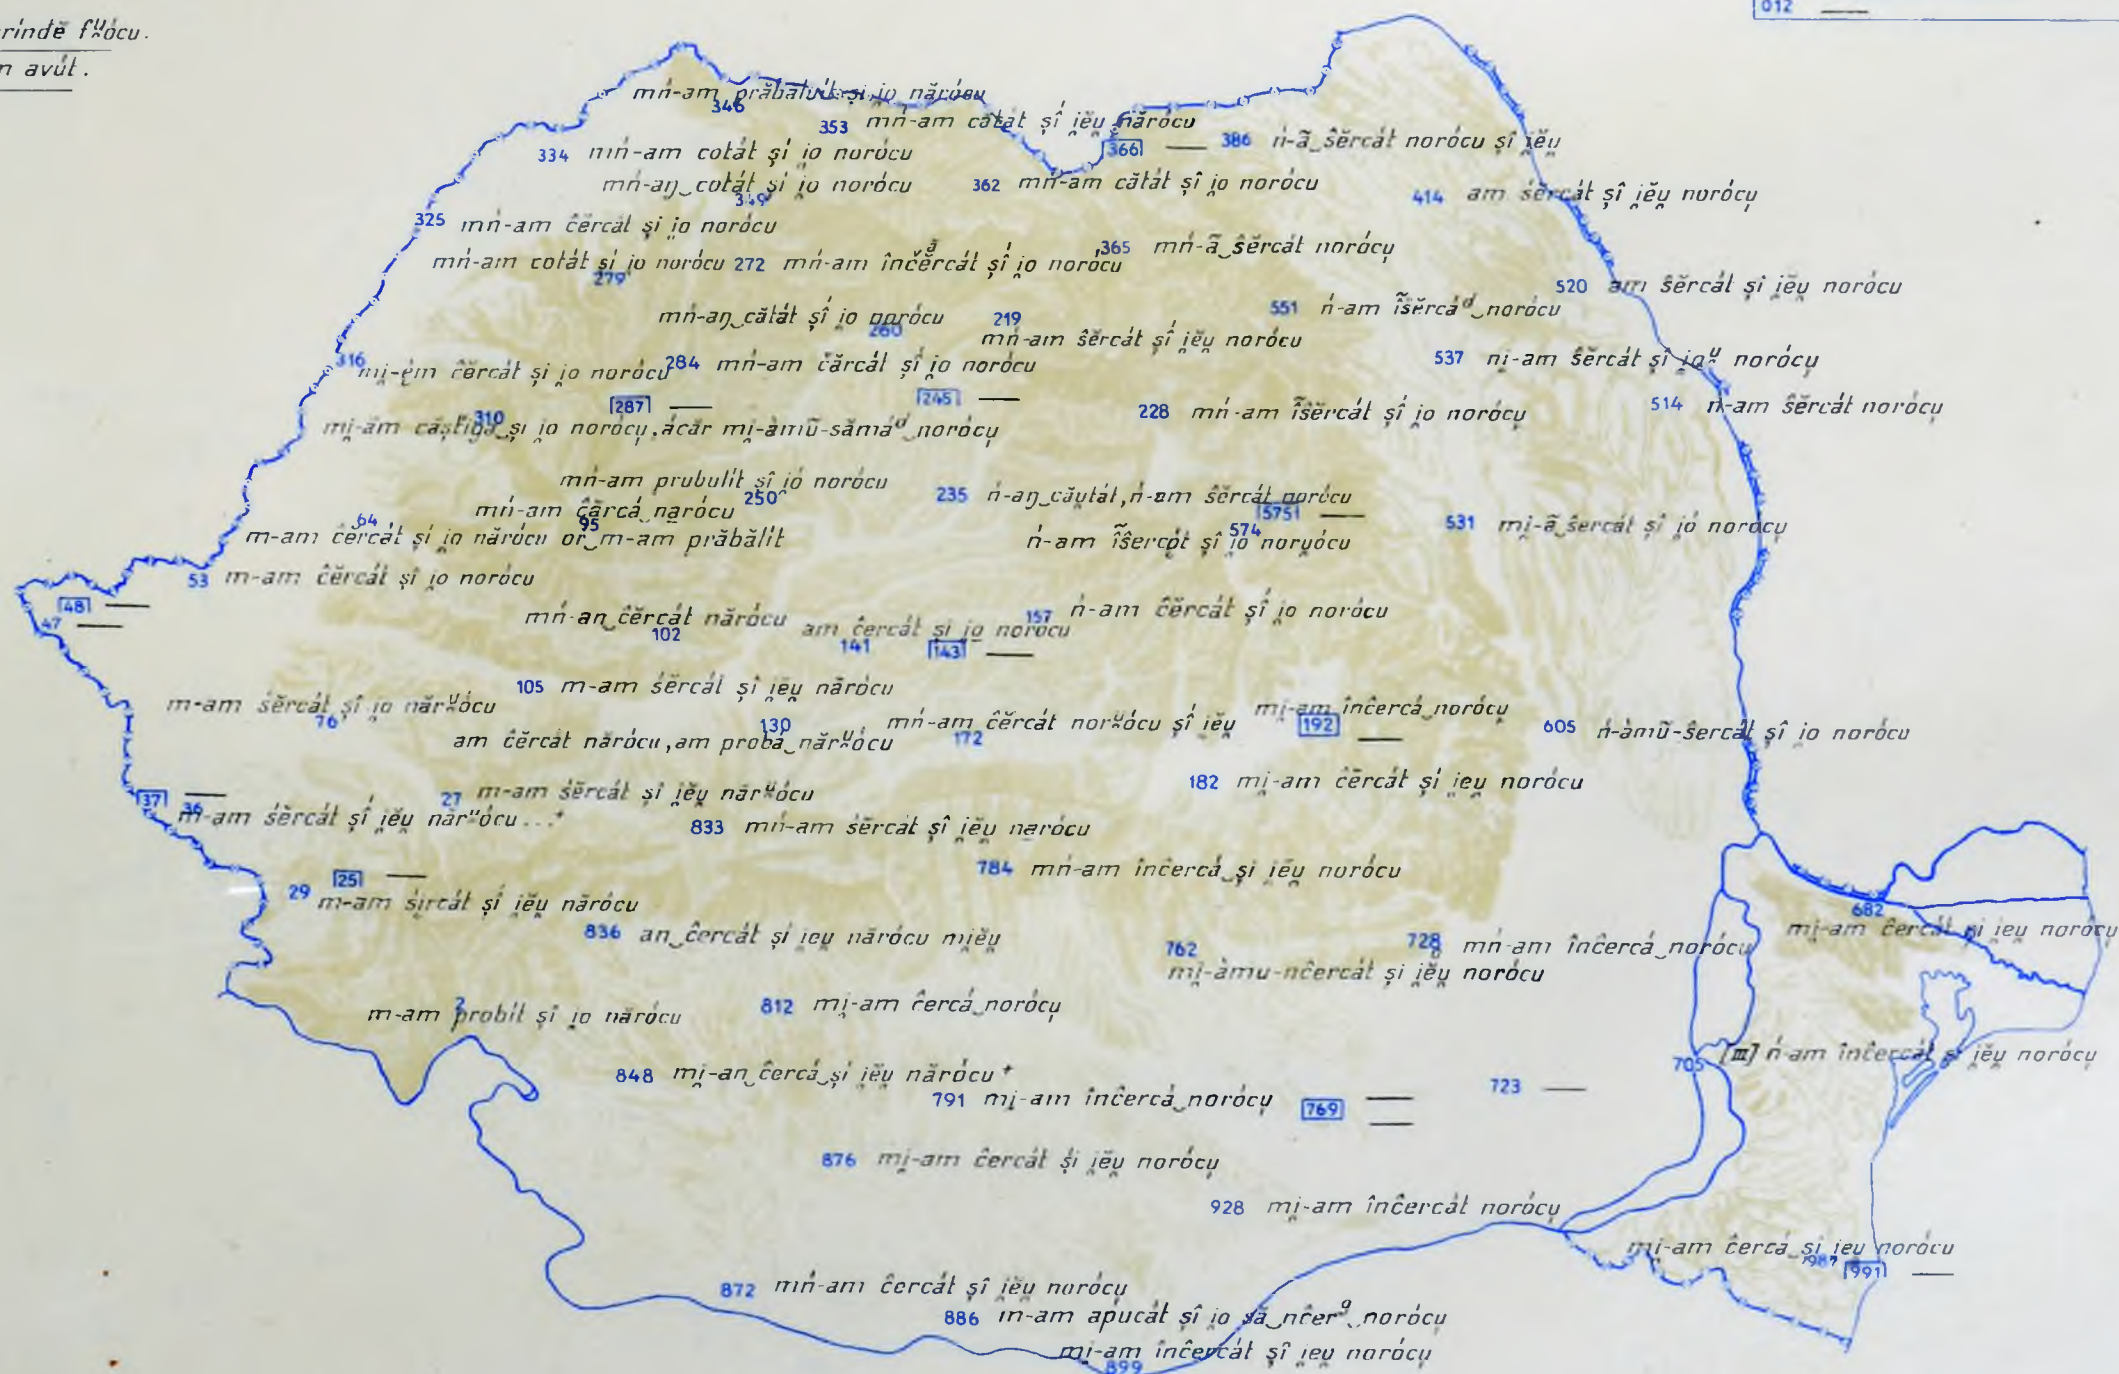 012 —
rinde fᵘ̯ócu.
n avút.
mń-am prăbăluit și io nărócu
346
353 mń-am cătát șî i̯ĕu̯ nărócu
334 mń-am cotát și i̯o norócu
366 —
386 ń-ã‿șĕrcát norócu șî i̯ĕu̯
mń-aŋ‿cotát și i̯o norócu
349
362 mń-am cătát șî i̯o norócu
414 am śĕrcát șî i̯ĕu̯ norócu̯
325 mń-am ĉĕrcát și i̯o norócu
365 mń-ã‿ŝĕrcát norócu̯
mń-am cotát și i̯o norócu
279
272 mń-am înčĕrcát șî i̯o norócu
520 am ŝĕrcát și i̯ĕu̯ norócu
551 ń-am îŝĕrcáᵈ‿norócu
mń-aŋ‿cătát șî i̯o norócu
260
219
mń-am ŝĕrcát șî i̯ĕu̯ norócu
537 ni̯-am ŝĕrcát șî i̯oᵘ norócu̯
316
mi̯-ĕm ĉĕrcát și i̯o norócu
284 mń-am ĉărcát șî i̯o norócu
245 —
287 —
228 mń-am îŝĕrcát șî i̯o norócu̯
514 ń-am ŝĕrcát norócu̯
310
mi̯-ăm căștigá‿și i̯o norócu̯, ácăr mi̯-àmũ-sămáᵈ‿norócu̯
mń-am prubulít și ió norócu
250
235 ń-aŋ‿cău̯tát, ń-am ŝĕrcát norócu
575 —
mń-am ĉărcá‿narócu
95
574
ń-am îŝercát șî i̯o noru̯ócu
531 mi̯-ã‿ŝercát și ió norócu̯
64
m-am ĉĕrcát și i̯o nărócu or‿m-am prăbălít
53 m-am ĉĕrcát și i̯o norócu
48 —
47 —
mń-an‿ĉĕrcát nărócu
102
am ĉercát și i̯o norócu
141
143 —
157 ń-am ĉĕrcát șî i̯o norócu
105 m-am śĕrcát șî i̯ĕu̯ nărócu
m-am śĕrcát și i̯o nărᵘ̯ócu
76
130
am ĉĕrcát nărócu, am probá‿nărᵘ̯ócu
mń-am ĉĕrcát norᵘ̯ócu șî i̯ĕu̯
172
mi̯-am înĉercá‿norócu̯
192 —
605 ń-àmũ-ŝercát șî i̯o norócu
182 mi̯-am ĉĕrcát și i̯eu̯ norócu
37 —
36
m-am śĕrcát șî i̯ĕu̯ nărᵘócu...⁺
27 m-am śĕrcát și i̯ĕu̯ nărᵘ̯ócu
833 mń-am śĕrcát șî i̯ĕu̯ narócu
784 mń-am înĉercá‿și i̯ĕu̯ norócu
25 —
29 m-am śircát șî i̯ĕu̯ nărócu
836 an‿ĉercát și i̯eu̯ nărócu mi̯ĕu̯
682
mi̯-am ĉercát și i̯eu̯ norócu̯
762
mi̯-àmu-nĉercát și i̯ĕu̯ norócu
728 mń-am înĉercá‿norócu
2
m-am probít șî i̯o nărócu
812 mi̯-am ĉercá‿norócu̯
705 [III] ń-am înĉercát și i̯ĕu̯ norócu
848 mi̯-an‿ĉercá‿și i̯ĕu̯ nărócu⁺
791 mi̯-am înĉercá‿norócu̯
769 —
723 —
876 mi̯-am ĉercát și i̯ĕu̯ norócu̯
928 mi̯-am înĉercát norócu̯
mi̯-am ĉercá‿și i̯eu̯ norócu
987
991 —
872 mń-am ĉercát șî i̯ĕu̯ norócu
886 m-am apucát șî i̯o să‿nĉerᵍ‿norócu
mi̯-am înĉercát șî i̯eu̯ norócu̯
899